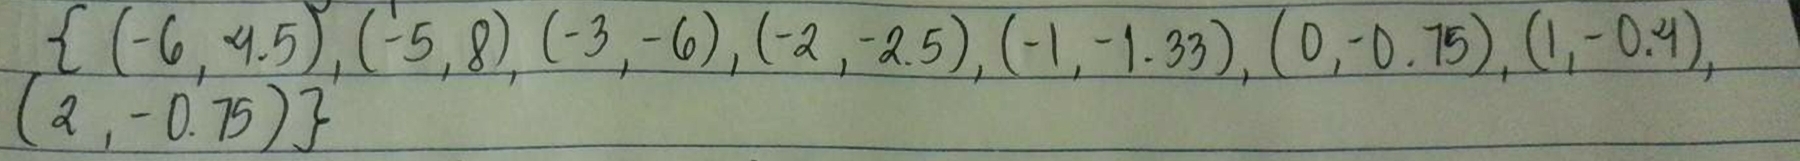 { (-6, 4.5), (-5, 8), (-3, -6), (-2, -2.5), (-1, -1.33), (0, -0.75), (1, -0.4),
(2, -0.75) }